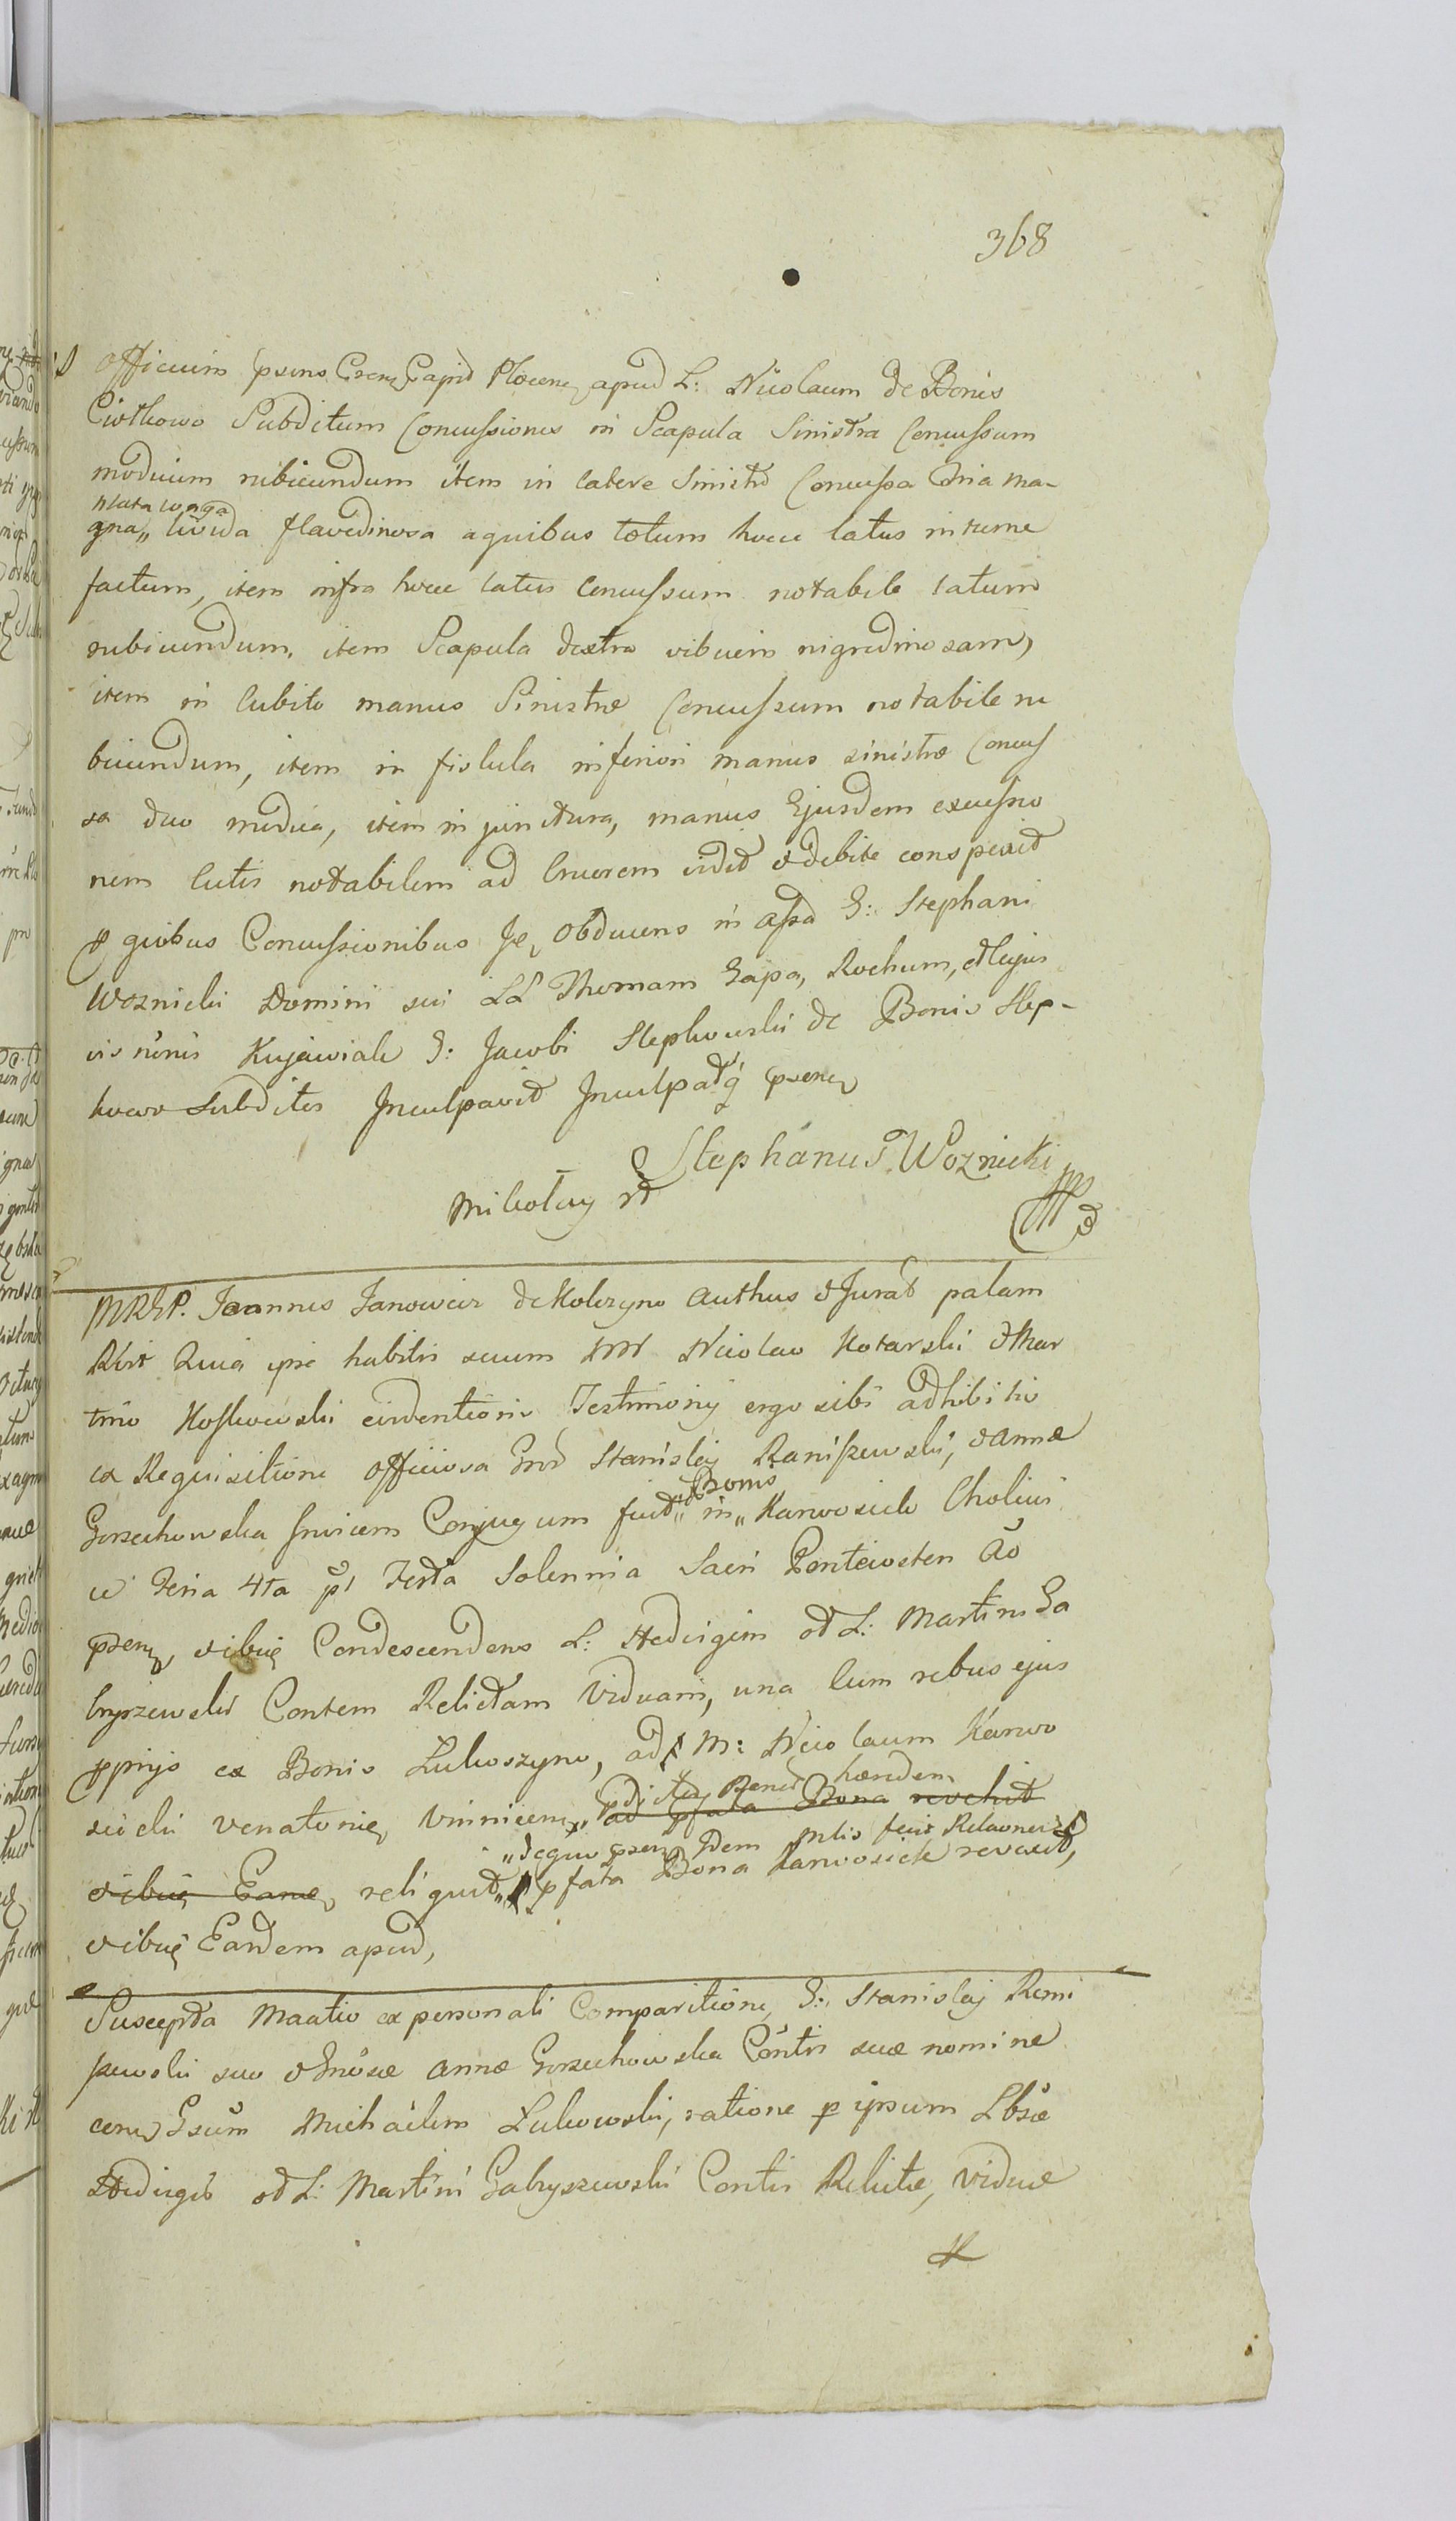 368
Officium psens Crens Capit Plocens apud L: Nicolaum de Bonis
Ciotkowo Subditum Concussiones in Scapula Sinistra Concussum
modicum rubicundum item in latere Sinistro Concussa tria ma-
lata longa
gna,, livida flavedinosa a quibus totum hocce latus intume
factum, item infra hocce latus Concussum notabile latum
rubicundum, item Scapula dextra vibicem nigredinosam,
item in Cubito manus Sinistræ Concussum notabile ru
bicundum, item in fistula inferiori manus sinistræ Concus
sa duo modica, item in junctura, manus Ejusdem excussio
nem Cutis notabilem ad Cruorem vidit & debite conspexit
p quibus Concussionibus Se, obducens in assa G: Stephani
Woznicki Domini sui LL Thomam Gapa, Rochum, et Cujus
vis nĩnis Kujawiak G: Jacobi Slepkowski de Bonis Slep-
kowo Subditos Inculpavit Inculpatq psens
Stephanus Woznicki
Mikołay
MRGP. Joannes Janowicz de Kobrzyno Authus & Jurat palam
Rĕvit Quia ipse habitis secum NN Nicolao Kotarski & Mar
tino Koskowski evidentioris Testimonij ergo sibi adhibitis
ex Requisitione officiosa Gnd Stanislaj Raniszewski, & Annæ
Gorzechowska Invicem Conjugum fuit,, in,, Karwosieki Cholus
Bonis
ci Feria 4ta pt Festa Solennia Sacri Pentecosten Ao
psens, & ibiq Condescendens L: Hedvigim ol L: Martini Ga
bryszewski Contem Relictam Viduam, una Cum rebus ejus
pprijs ex Bonis Lukoszyno, ad M: Nicolaum Karwo
sieki venatoris, Vinnicens, ad pfata Bona revehit
dictor Bonor hæredem
& ibiq Eame, reliquit,, pfata Bona Karwosieki revexit,
,,de quo psens Idem mlis fecit Relaonem
& ibiq Eandem apud,
Suscepta Maatio ex personali Comparitione, G: Stanislaj Rani
szewski suo & Gnosæ Annæ Gorzechowska Contis suæ nomine
cerns Gsum Michaelem Lukowski, ratione p ipsum Lbsæ
Hedvigis ol L: Martini Gabryszewski Contis Relictæ, Viduæ